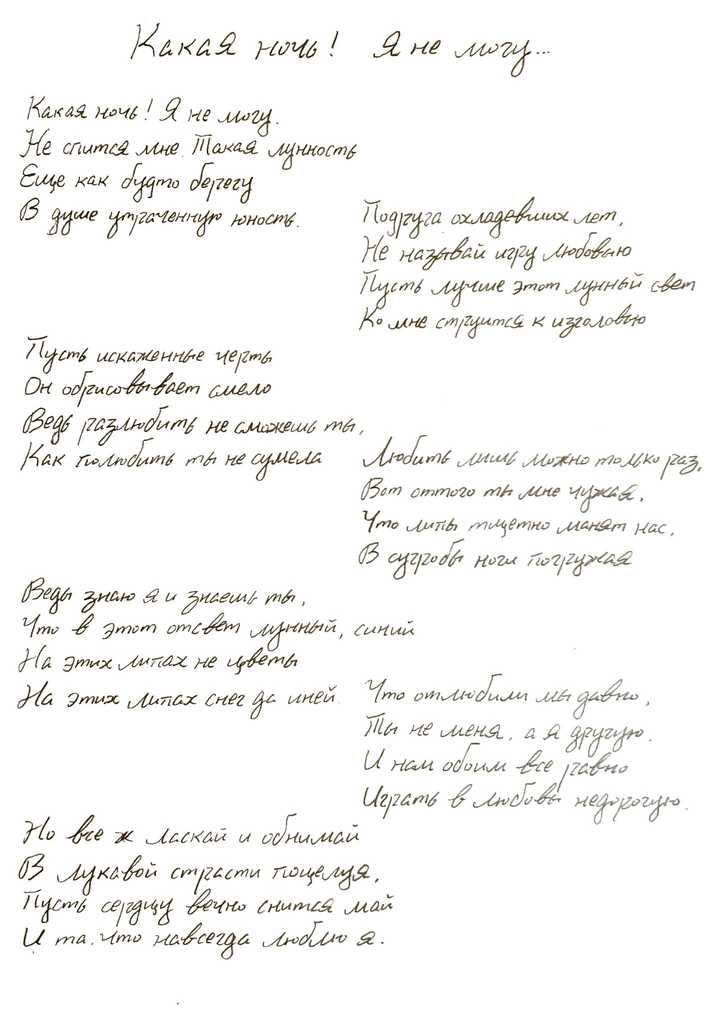 Какая ночь! Я не могу...
Какая ночь! Я не могу.
Не спится мне. Такая лунность
Еще как будто берегу
В душе утраченную юность.
Подруга охладевших лет,
Не называй игру любовью
Пусть лучше этот лунный свет
Ко мне струится к изголовью
Пусть искаженные черты
Он обрисовывает смело
Ведь разлюбить не сможешь ты,
Как полюбить ты не сумела
Любить лишь можно только раз,
Вот оттого ты мне чужая,
Что липы тщетно манят нас,
В сугробы ноги погружая
Ведь знаю я и знаешь ты,
Что в этот отсвет лунный, синий
На этих липах не цветы
На этих липах снег да иней.
Что отлюбили мы давно,
Ты не меня, а я другую.
И нам обоим все равно
Играть в любовь недорогую.
Но все ж ласкай и обнимай
В лукавой страсти поцелуя,
Пусть сердцу вечно снится май
И та, что навсегда люблю я.